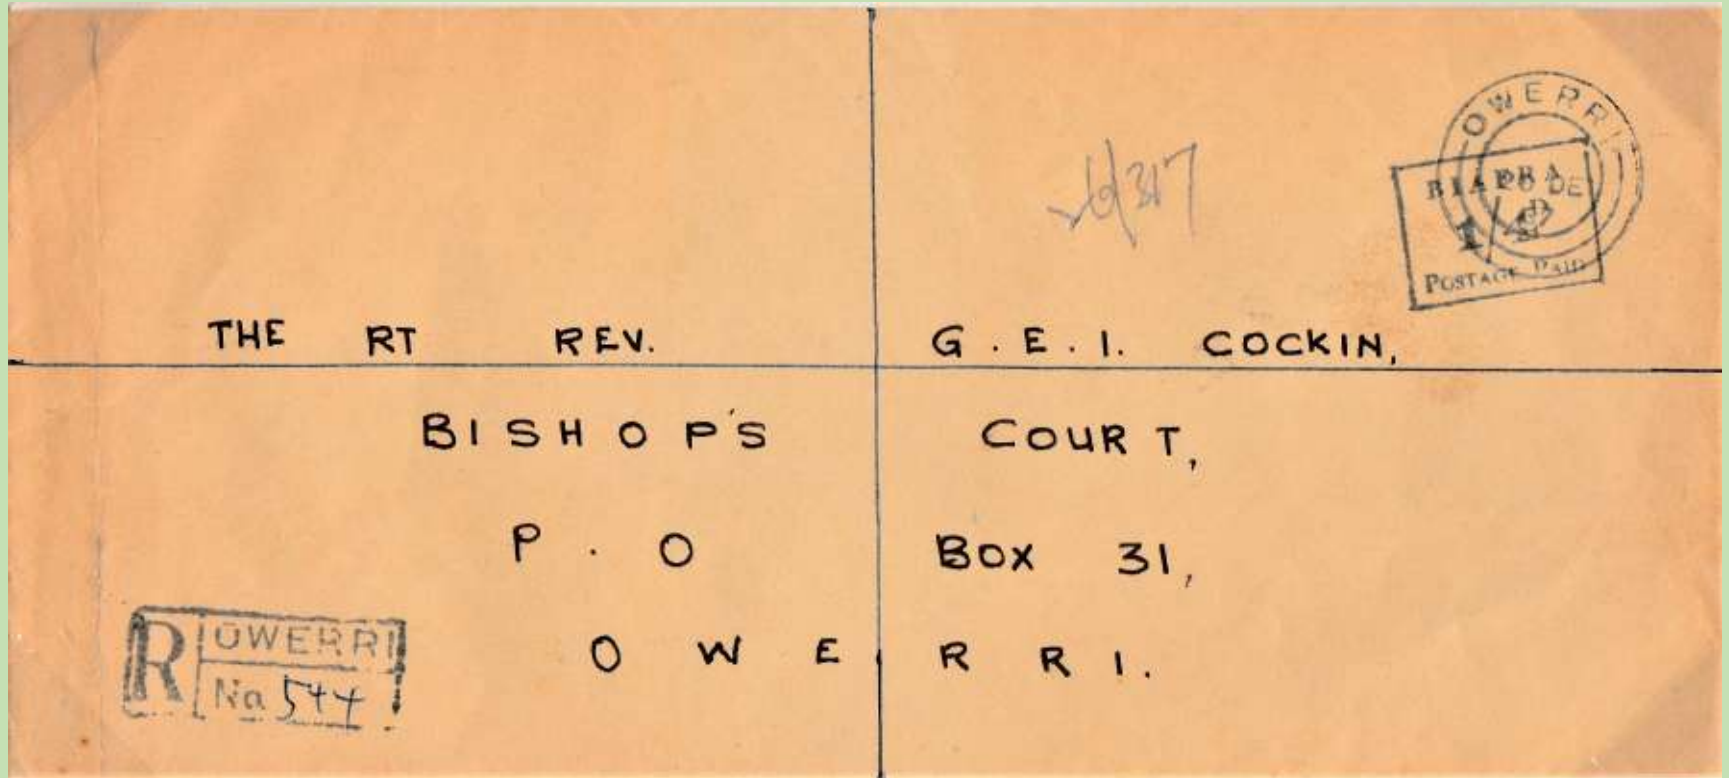 OWERRI
BIAFRA
1/
POSTAGE PAID
317
THE RT REV. G.E.I. COCKIN,
BISHOP'S COURT,
P.O BOX 31,
OWERRI.
R OWERRI
No 544